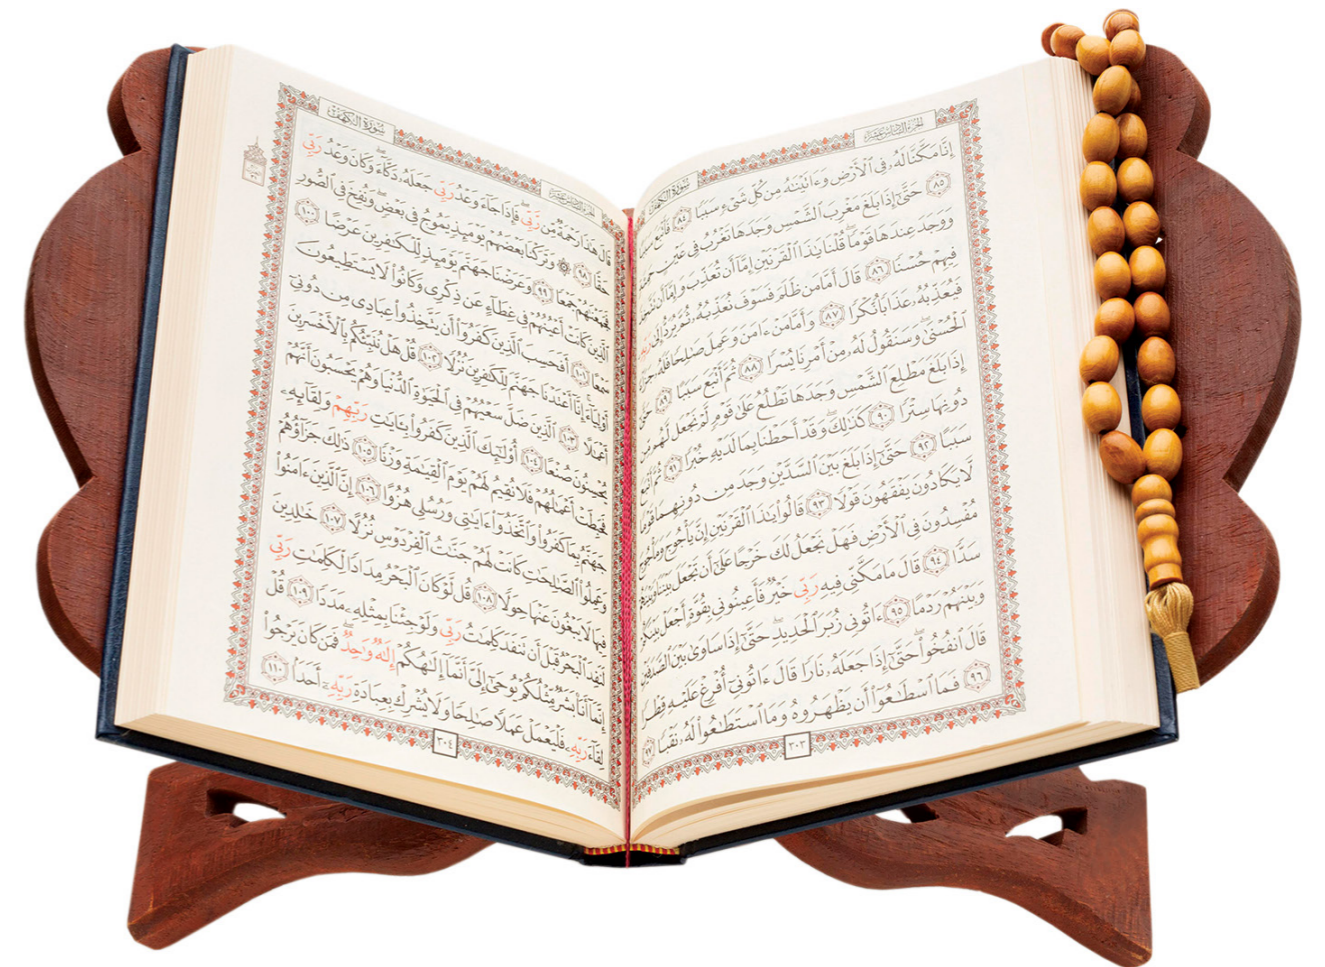 الجزء السادس عشر
سورة الكهف
إِنَّا مَكَّنَّا لَهُۥ فِى ٱلْأَرْضِ وَءَاتَيْنَٰهُ مِن كُلِّ شَىْءٍ سَبَبًا ٨٤ فَأَتْبَعَ
٨٥ حَتَّىٰٓ إِذَا بَلَغَ مَغْرِبَ ٱلشَّمْسِ وَجَدَهَا تَغْرُبُ فِى عَيْنٍ
وَوَجَدَ عِندَهَا قَوْمًا ۗ قُلْنَا يَٰذَا ٱلْقَرْنَيْنِ إِمَّآ أَن تُعَذِّبَ وَإِمَّآ أَن
فِيهِمْ حُسْنًا ٨٦ قَالَ أَمَّا مَن ظَلَمَ فَسَوْفَ نُعَذِّبُهُۥ ثُمَّ يُرَدُّ إِلَىٰ
فَيُعَذِّبُهُۥ عَذَابًا نُّكْرًا ٨٧ وَأَمَّا مَنْ ءَامَنَ وَعَمِلَ صَٰلِحًا فَلَهُۥ
ٱلْحُسْنَىٰ ۖ وَسَنَقُولُ لَهُۥ مِنْ أَمْرِنَا يُسْرًا ٨٨ ثُمَّ أَتْبَعَ سَبَبًا ٨٩
إِذَا بَلَغَ مَطْلِعَ ٱلشَّمْسِ وَجَدَهَا تَطْلُعُ عَلَىٰ قَوْمٍ لَّمْ نَجْعَل لَّهُم
دُونِهَا سِتْرًا ٩٠ كَذَٰلِكَ وَقَدْ أَحَطْنَا بِمَا لَدَيْهِ خُبْرًا ٩١ ثُمَّ أَتْبَعَ
سَبَبًا ٩٢ حَتَّىٰٓ إِذَا بَلَغَ بَيْنَ ٱلسَّدَّيْنِ وَجَدَ مِن دُونِهِمَا قَوْمًا
لَّا يَكَادُونَ يَفْقَهُونَ قَوْلًا ٩٣ قَالُوا۟ يَٰذَا ٱلْقَرْنَيْنِ إِنَّ يَأْجُوجَ وَمَأْجُوجَ
مُفْسِدُونَ فِى ٱلْأَرْضِ فَهَلْ نَجْعَلُ لَكَ خَرْجًا عَلَىٰٓ أَن تَجْعَلَ بَيْنَنَا وَبَيْنَهُمْ
سَدًّا ٩٤ قَالَ مَا مَكَّنِّى فِيهِ رَبِّى خَيْرٌ فَأَعِينُونِى بِقُوَّةٍ أَجْعَلْ بَيْنَكُمْ
وَبَيْنَهُمْ رَدْمًا ٩٥ ءَاتُونِى زُبَرَ ٱلْحَدِيدِ ۖ حَتَّىٰٓ إِذَا سَاوَىٰ بَيْنَ ٱلصَّدَفَيْنِ
قَالَ ٱنفُخُوا۟ ۖ حَتَّىٰٓ إِذَا جَعَلَهُۥ نَارًا قَالَ ءَاتُونِىٓ أُفْرِغْ عَلَيْهِ قِطْرًا
٩٦ فَمَا ٱسْطَٰعُوٓا۟ أَن يَظْهَرُوهُ وَمَا ٱسْتَطَٰعُوا۟ لَهُۥ نَقْبًا ٩٧
٣٠٣
الجزء السادس عشر
سورة الكهف
قَالَ هَٰذَا رَحْمَةٌ مِّن رَّبِّى ۖ فَإِذَا جَآءَ وَعْدُ رَبِّى جَعَلَهُۥ دَكَّآءَ ۖ وَكَانَ وَعْدُ رَبِّى
حَقًّا ٩٨ ۞ وَتَرَكْنَا بَعْضَهُمْ يَوْمَئِذٍ يَمُوجُ فِى بَعْضٍ ۖ وَنُفِخَ فِى ٱلصُّورِ
فَجَمَعْنَٰهُمْ جَمْعًا ٩٩ وَعَرَضْنَا جَهَنَّمَ يَوْمَئِذٍ لِّلْكَٰفِرِينَ عَرْضًا ١٠٠
ٱلَّذِينَ كَانَتْ أَعْيُنُهُمْ فِى غِطَآءٍ عَن ذِكْرِى وَكَانُوا۟ لَا يَسْتَطِيعُونَ
سَمْعًا ١٠١ أَفَحَسِبَ ٱلَّذِينَ كَفَرُوٓا۟ أَن يَتَّخِذُوا۟ عِبَادِى مِن دُونِىٓ
أَوْلِيَآءَ ۚ إِنَّآ أَعْتَدْنَا جَهَنَّمَ لِلْكَٰفِرِينَ نُزُلًا ١٠٢ قُلْ هَلْ نُنَبِّئُكُم بِٱلْأَخْسَرِينَ
أَعْمَٰلًا ١٠٣ ٱلَّذِينَ ضَلَّ سَعْيُهُمْ فِى ٱلْحَيَوٰةِ ٱلدُّنْيَا وَهُمْ يَحْسَبُونَ أَنَّهُمْ
يُحْسِنُونَ صُنْعًا ١٠٤ أُو۟لَٰٓئِكَ ٱلَّذِينَ كَفَرُوا۟ بِـَٔايَٰتِ رَبِّهِمْ وَلِقَآئِهِۦ
فَحَبِطَتْ أَعْمَٰلُهُمْ فَلَا نُقِيمُ لَهُمْ يَوْمَ ٱلْقِيَٰمَةِ وَزْنًا ١٠٥ ذَٰلِكَ جَزَآؤُهُمْ
جَهَنَّمُ بِمَا كَفَرُوا۟ وَٱتَّخَذُوٓا۟ ءَايَٰتِى وَرُسُلِى هُزُوًا ١٠٦ إِنَّ ٱلَّذِينَ ءَامَنُوا۟
وَعَمِلُوا۟ ٱلصَّٰلِحَٰتِ كَانَتْ لَهُمْ جَنَّٰتُ ٱلْفِرْدَوْسِ نُزُلًا ١٠٧ خَٰلِدِينَ
فِيهَا لَا يَبْغُونَ عَنْهَا حِوَلًا ١٠٨ قُل لَّوْ كَانَ ٱلْبَحْرُ مِدَادًا لِّكَلِمَٰتِ رَبِّى
لَنَفِدَ ٱلْبَحْرُ قَبْلَ أَن تَنفَدَ كَلِمَٰتُ رَبِّى وَلَوْ جِئْنَا بِمِثْلِهِۦ مَدَدًا ١٠٩ قُلْ
إِنَّمَآ أَنَا۠ بَشَرٌ مِّثْلُكُمْ يُوحَىٰٓ إِلَىَّ أَنَّمَآ إِلَٰهُكُمْ إِلَٰهٌ وَٰحِدٌ ۖ فَمَن كَانَ يَرْجُوا۟
لِقَآءَ رَبِّهِۦ فَلْيَعْمَلْ عَمَلًا صَٰلِحًا وَلَا يُشْرِكْ بِعِبَادَةِ رَبِّهِۦٓ أَحَدًۢا ١١٠
٣٠٤